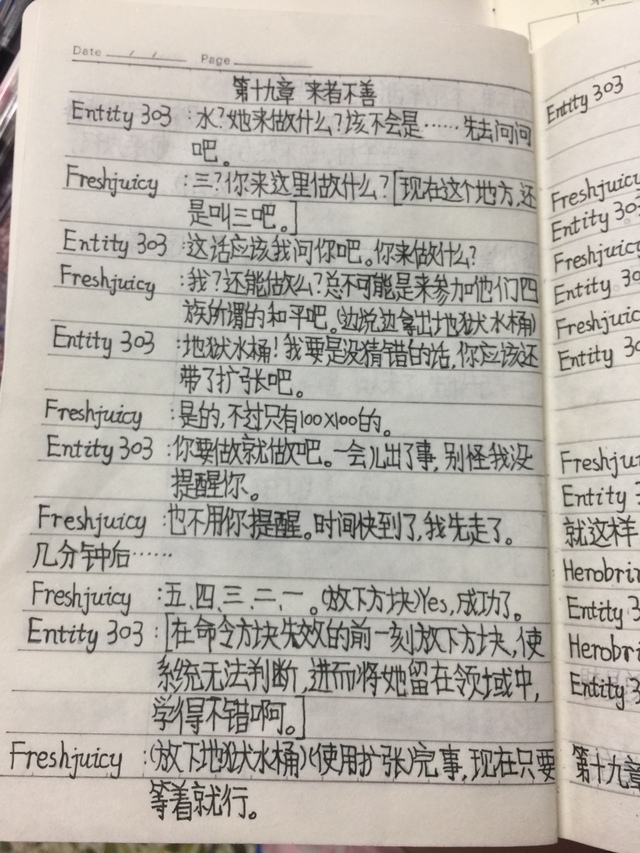 Date / / Page
第十九章 来者不善
Entity 303 :水?她来做什么?该不会是……先去问问
吧。
Freshjuicy :三?你来这里做什么?[现在这个地方,还
是叫三吧。]
Entity 303 :这话应该我问你吧。你来做什么?
Freshjuicy :我?还能做么?总不可能是来参加他们四
族所谓的和平吧。(边说边拿出地狱水桶)
Entity 303 :地狱水桶!我要是没猜错的话,你应该还
带了扩张吧。
Freshjuicy :是的,不过只有100×100的。
Entity 303 :你要做就做吧。一会儿出了事,别怪我没
提醒你。
Freshjuicy :也不用你提醒。时间快到了,我先走了。
几分钟后……
Freshjuicy :五、四、三、二、一。(放下方块)Yes,成功了。
Entity 303 :[在命令方块失效的前一刻放下方块,使
系统无法判断,进而将她留在领域中,
学得不错啊。]
Freshjuicy :(放下地狱水桶)(使用扩张)完事,现在只要
等着就行。
Entity 303
Freshjuicy
Entity 303
Freshjuicy
Entity 30
Freshjuicy
Entity 30
Freshju
Entity
就这样
Herobrin
Entity 3
Herobrin
Entity 30
第十九章